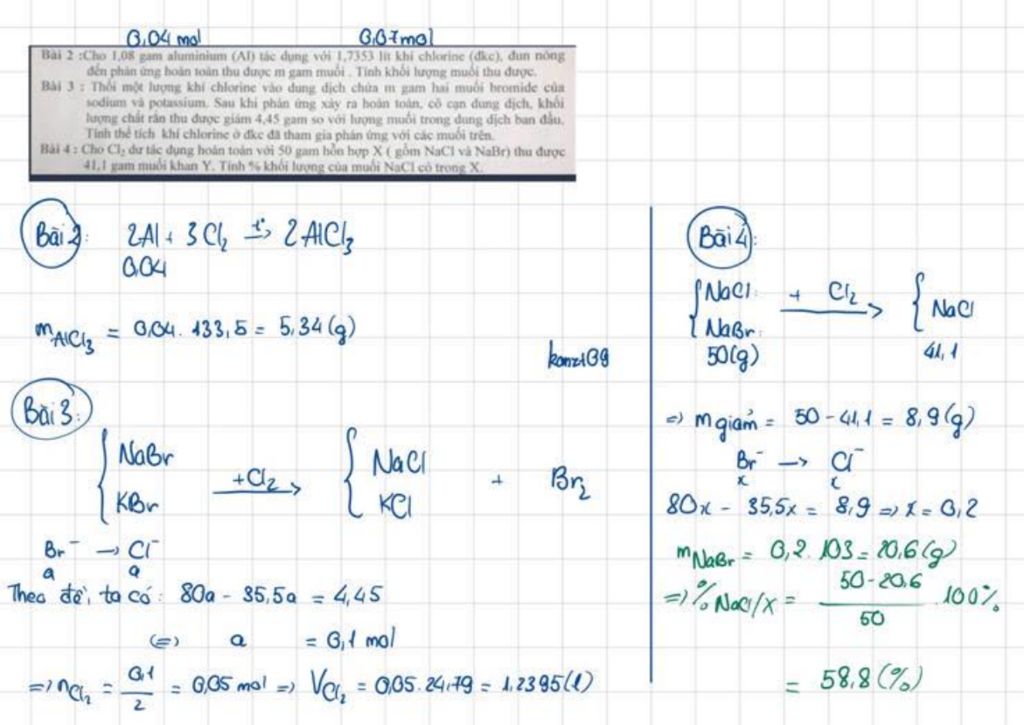 0,04 mol 0,07 mol
Bài 2 :Cho 1,08 gam aluminium (Al) tác dụng với 1,7353 lít khí chlorine (đkc), đun nóng
đến phản ứng hoàn toàn thu được m gam muối . Tính khối lượng muối thu được.
Bài 3 : Thổi một lượng khí chlorine vào dung dịch chứa m gam hai muối bromide của
sodium và potassium. Sau khi phản ứng xảy ra hoàn toàn, cô cạn dung dịch, khối
lượng chất rắn thu được giảm 4,45 gam so với lượng muối trong dung dịch ban đầu.
Tính thể tích khí chlorine ở đkc đã tham gia phản ứng với các muối trên.
Bài 4 : Cho Cl₂ dư tác dụng hoàn toàn với 50 gam hỗn hợp X ( gồm NaCl và NaBr) thu được
41,1 gam muối khan Y. Tính % khối lượng của muối NaCl có trong X.
Bài 2: 2Al + 3Cl₂ t°→ 2AlCl₃
0,04
m AlCl₃ = 0,04. 133,5 = 5,34 (g)
konzt09
Bài 3:
NaBr
KBr
+Cl₂ →
NaCl
KCl
+ Br₂
Br⁻ → Cl⁻
a a
Theo đề, ta có: 80a - 35,5a = 4,45
(=) a = 0,1 mol
=> nCl₂ = 0,1/2 = 0,05 mol => VCl₂ = 0,05.24,79 = 1,2395 (l)
Bài 4:
NaCl:
NaBr:
+ Cl₂ →
NaCl
50(g) 41,1
=) m giảm = 50 - 41,1 = 8,9 (g)
Br⁻ → Cl⁻
x x
80x - 35,5x = 8,9 => x = 0,2
mNaBr = 0,2. 103 = 20,6 (g)
=) % NaCl/X = (50-20,6)/50 .100%
= 58,8 (%)